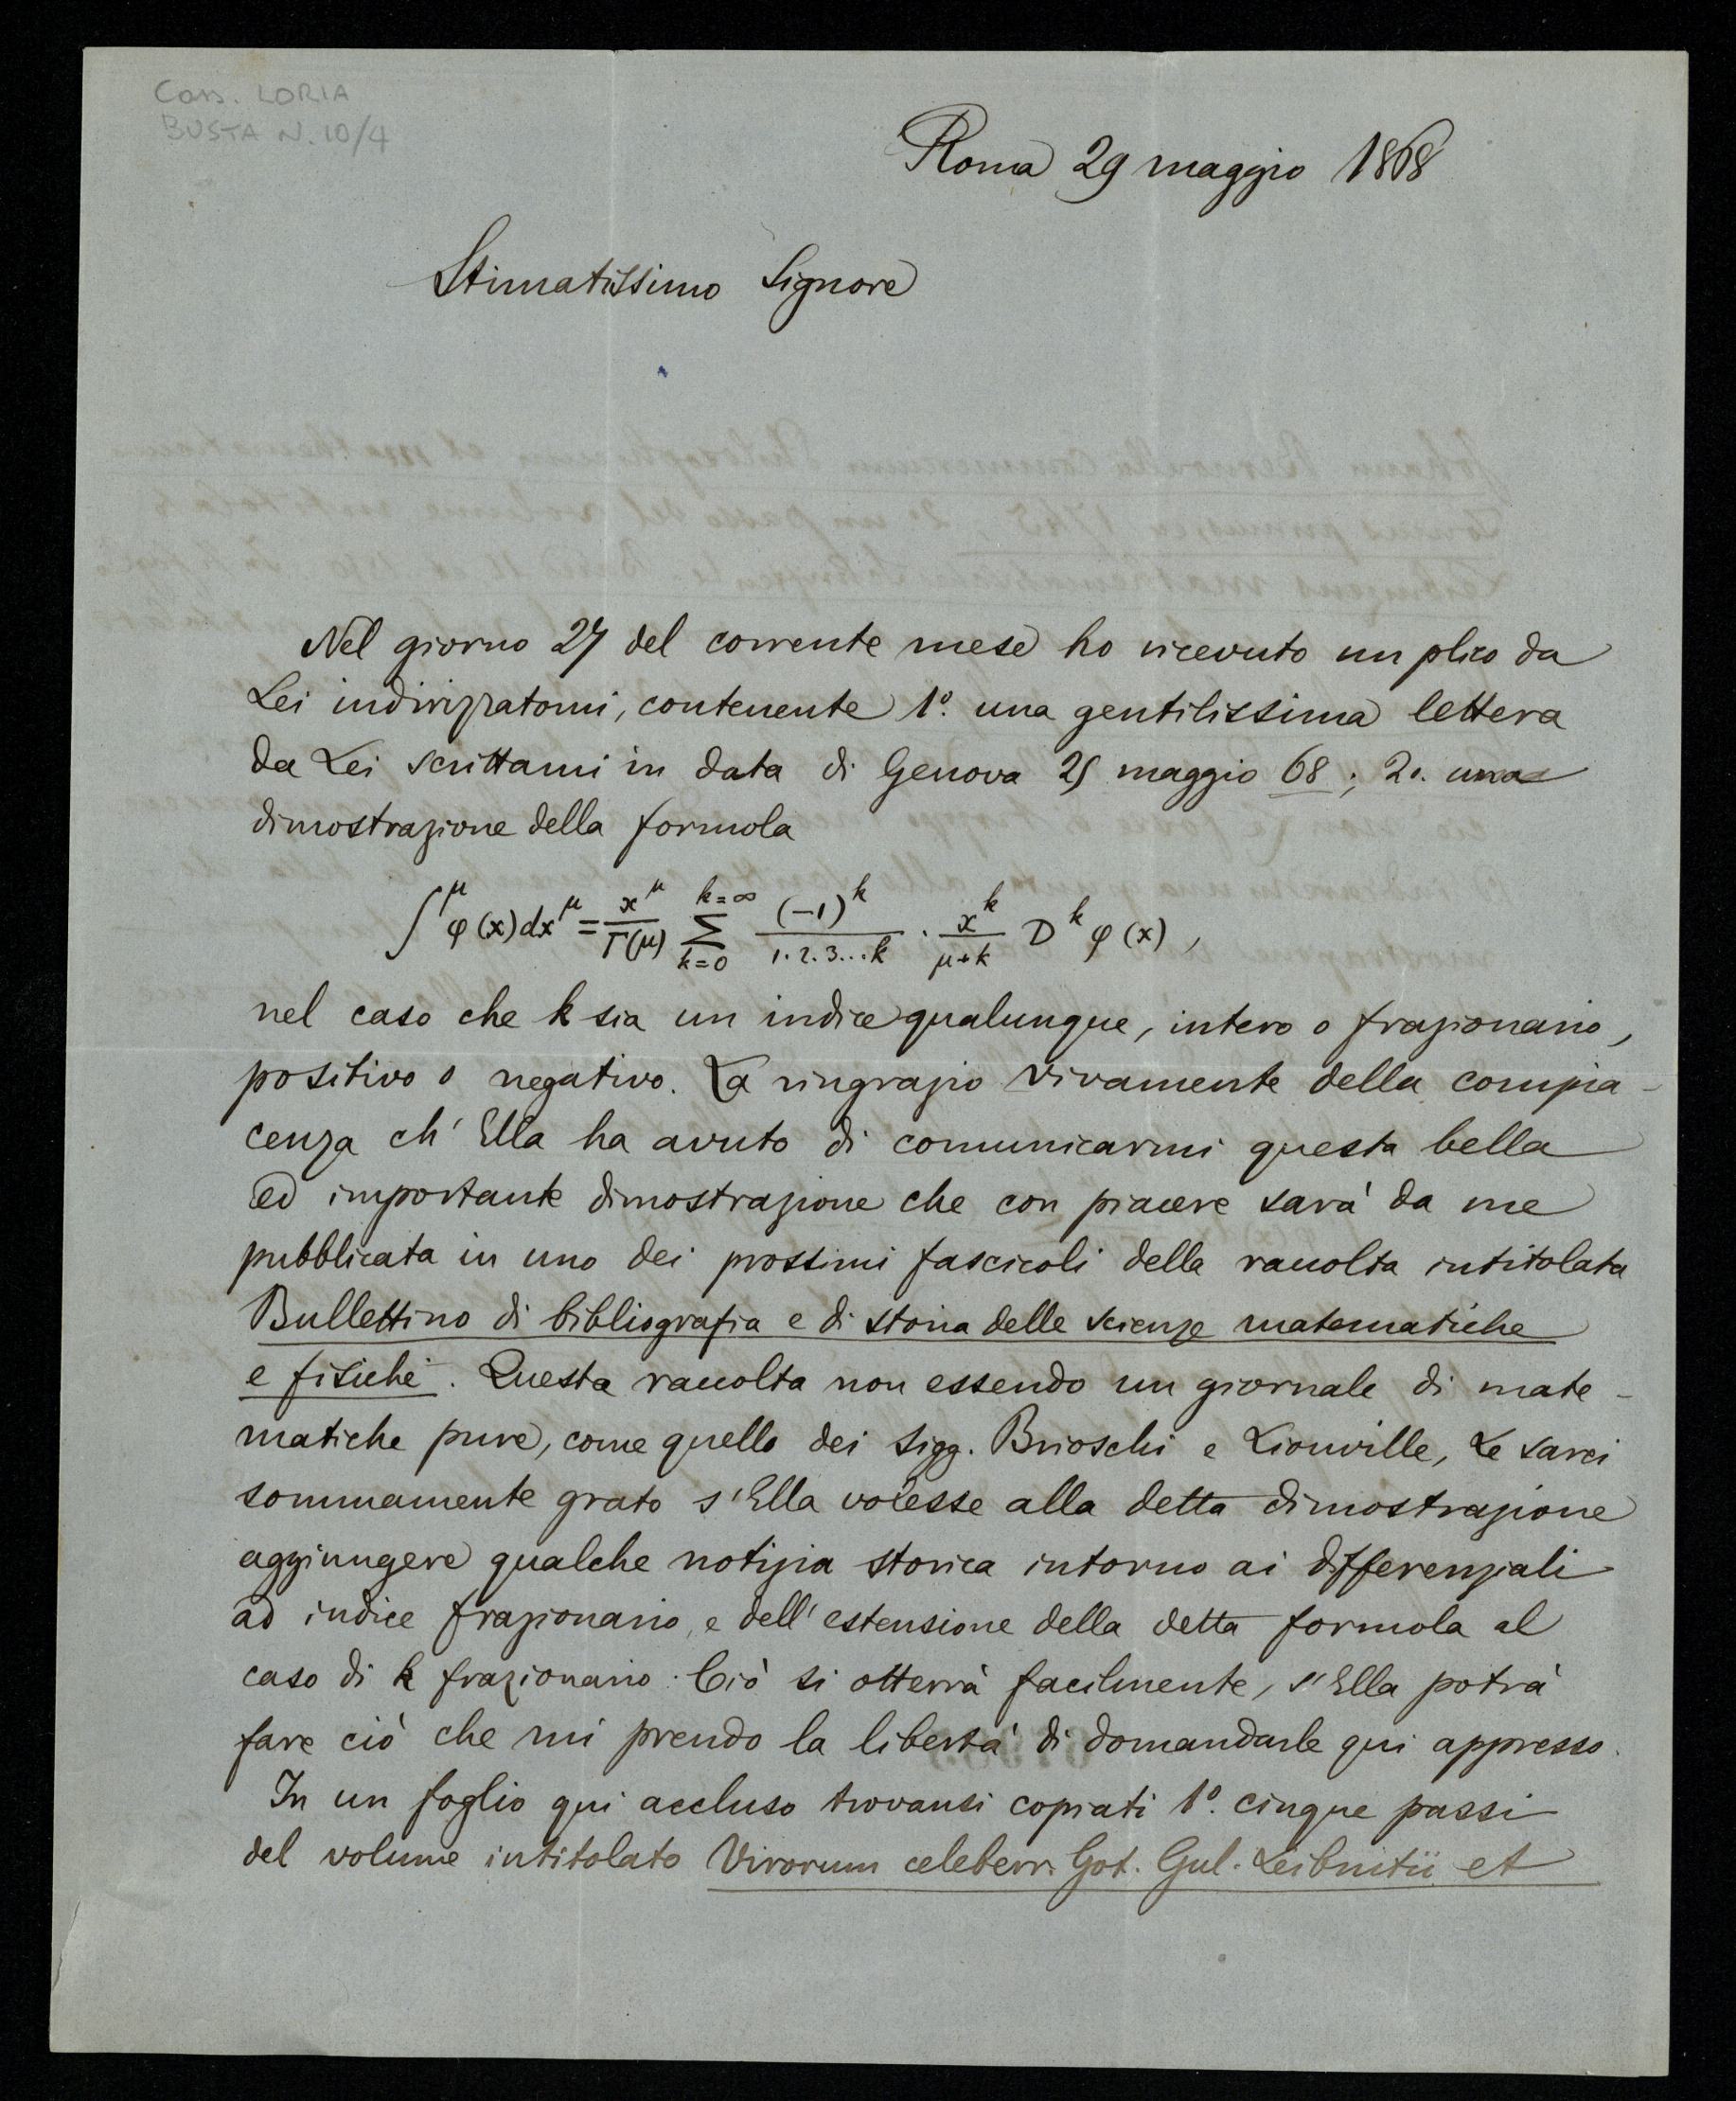 Cass. LORIA
BUSTA N. 10/4
Roma 29 maggio 1868
Stimatissimo Signore
Nel giorno 27 del corrente mese ho ricevuto un plico da
Lei indirizzatomi, contenente 1º. una gentilissima lettera
da Lei scrittami in data di Genova 25 maggio 68; 2º. una
dimostrazione della formola
∫^μ φ(x)dx^μ = x^μ/Γ(μ) Σ_{k=0}^{k=∞} (-1)^k/(1.2.3...k) · x^k/(μ+k) D^k φ(x),
nel caso che k sia un indice qualunque, intero o frazionario,
positivo o negativo. La ringrazio vivamente della compia-
cenza ch'Ella ha avuto di comunicarmi questa bella
ed importante dimostrazione che con piacere sarà da me
pubblicata in uno dei prossimi fascicoli della raccolta intitolata
Bullettino di bibliografia e di storia delle scienze matematiche
e fisiche. Questa raccolta non essendo un giornale di mate-
matiche pure, come quello dei Sigg. Brioschi e Liouville, Le sarei
sommamente grato s'Ella volesse alla detta dimostrazione
aggiungere qualche notizia storica intorno ai differenziali
ad indice frazionario, e dell'estensione della detta formola al
caso di k frazionario. Ciò si otterrà facilmente, s'Ella potrà
fare ciò che mi prendo la libertà di domandarle qui appresso.
In un foglio qui accluso trovansi copiati 1º. cinque passi
del volume intitolato Virorum celeberr. Got. Gul. Leibnitii et